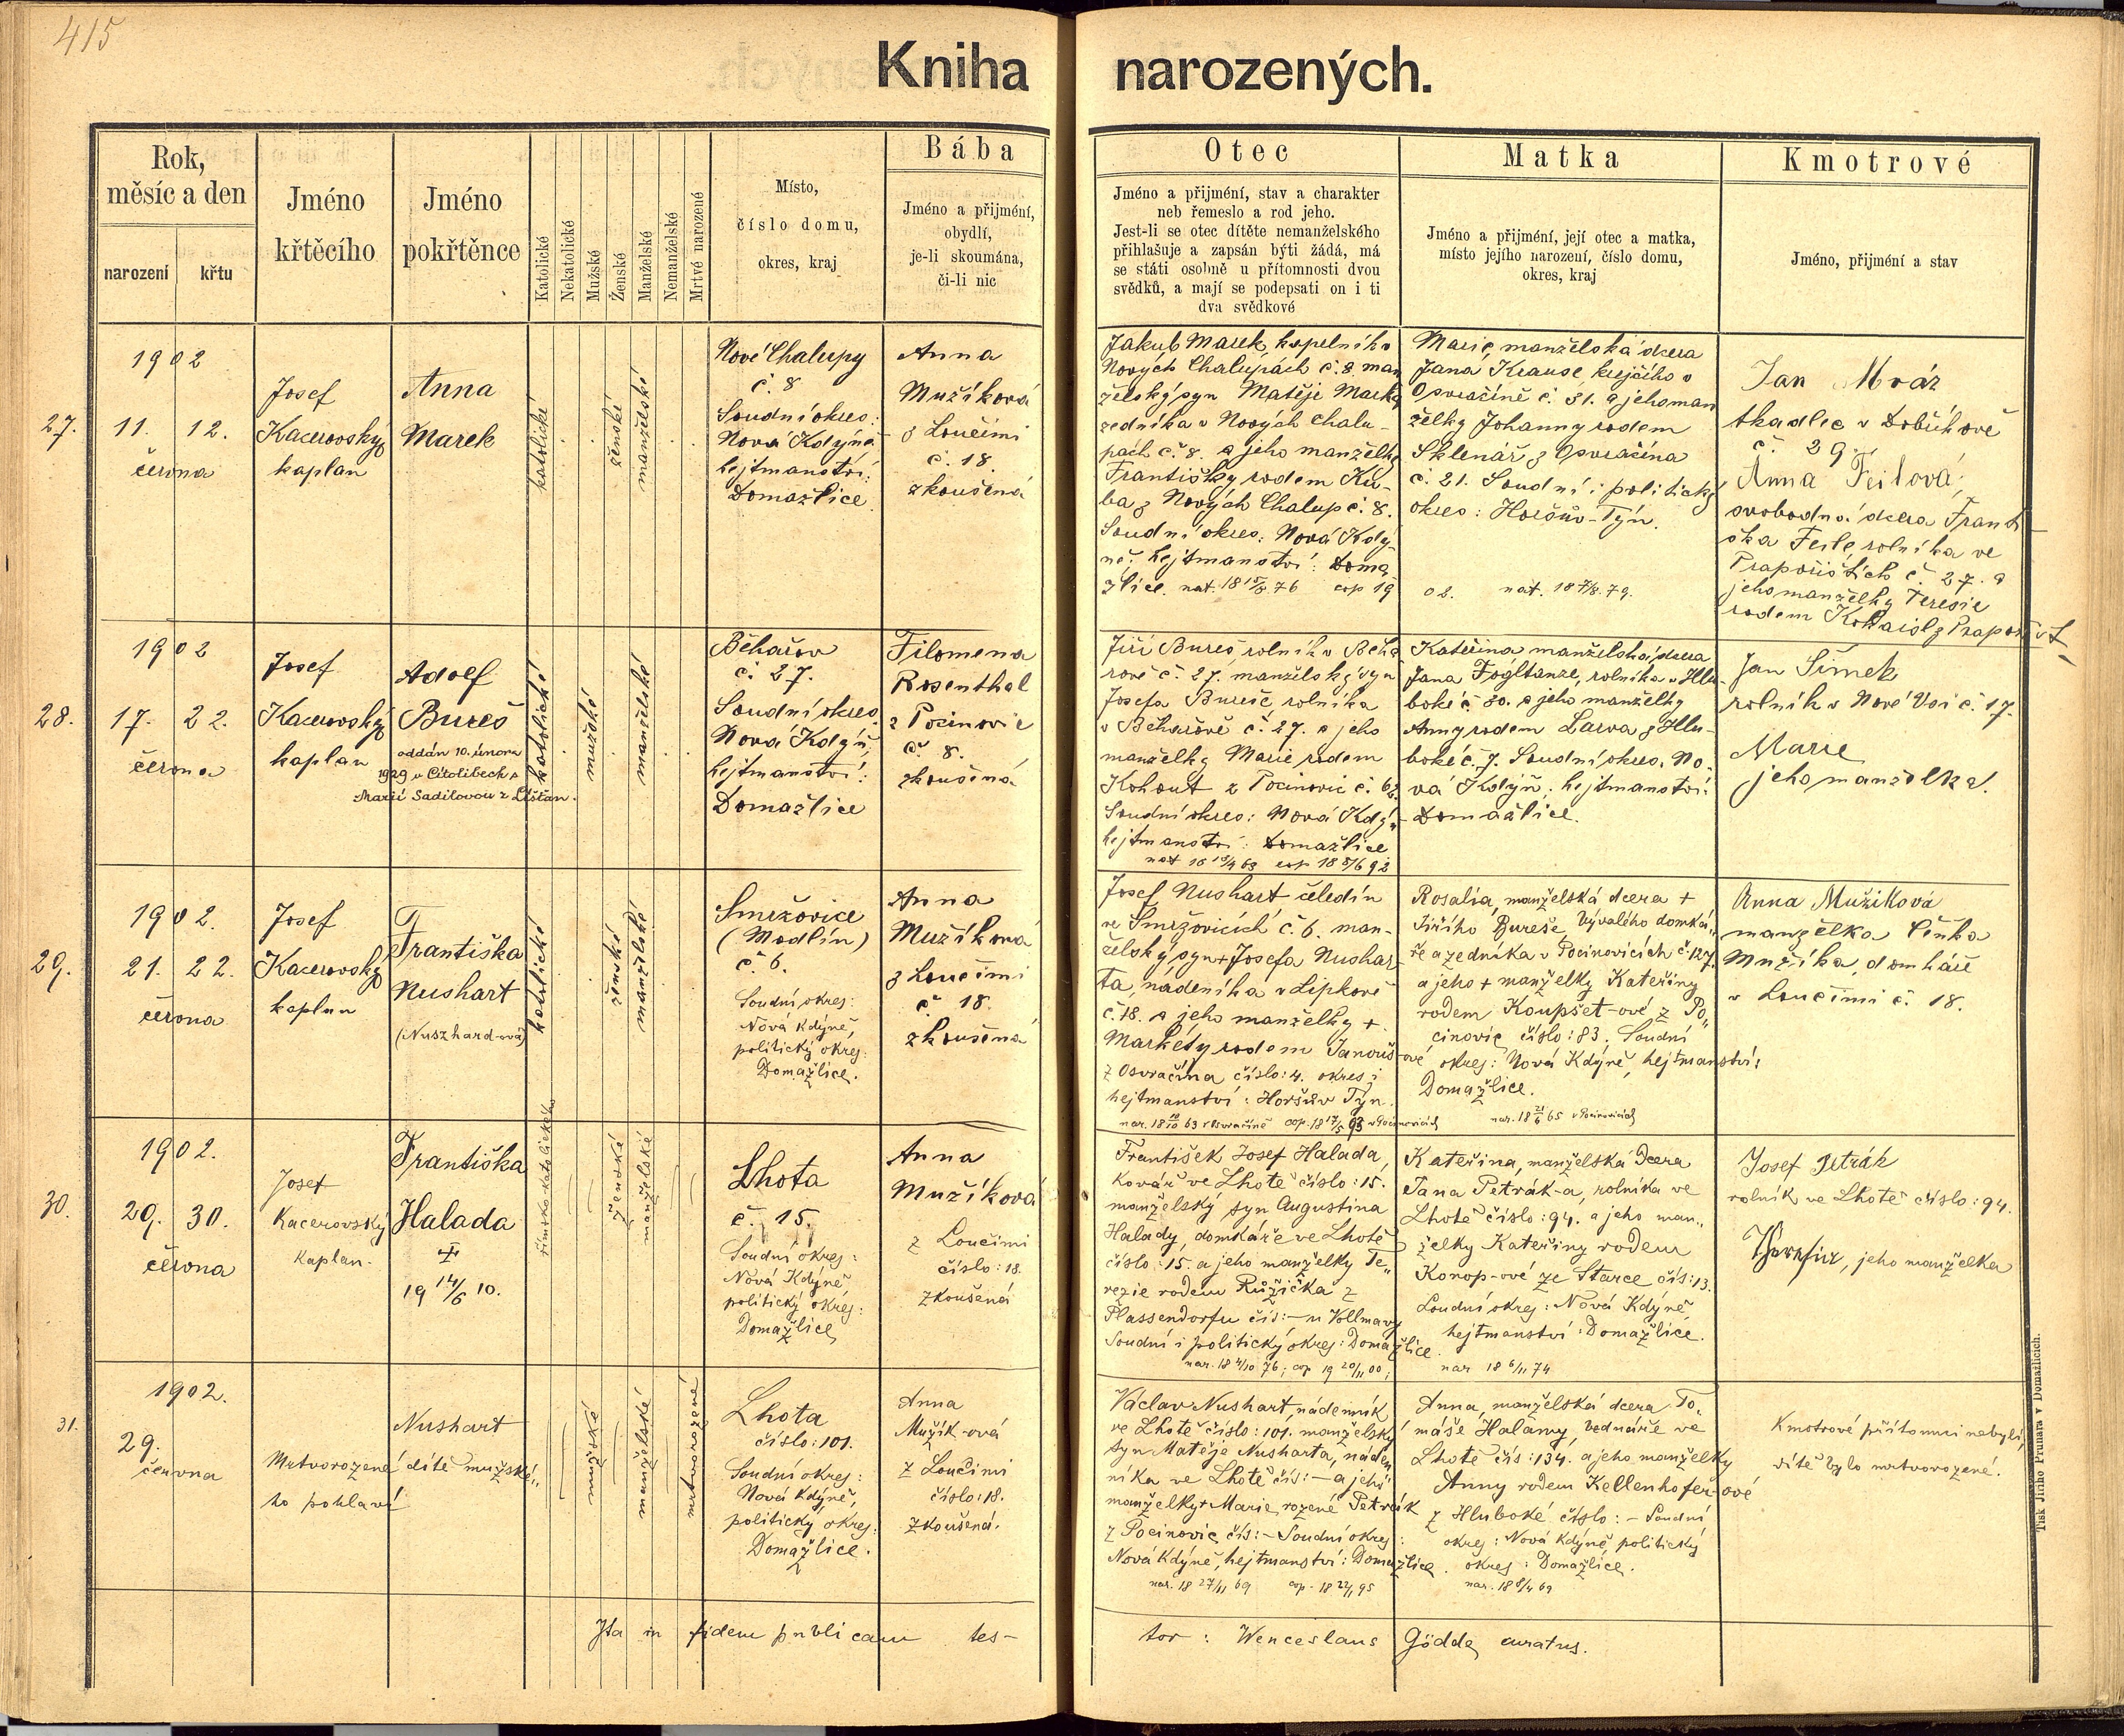 415
Kniha narozených.
Rok,
měsíc a den
narození
křtu
Jméno
křtěcího
Jméno
pokřtěnce
Katolické
Nekatolické
Mužské
Ženské
Manželské
Nemanželské
Mrtvě narozené
Místo,
číslo domu,
okres, kraj
Bába
Jméno a přijmění,
obydlí,
je-li skoumána,
či-li nic
Otec
Jméno a přijmění, stav a charakter
neb řemeslo a rod jeho.
Jest-li se otec dítěte nemanželského
přihlašuje a zapsán býti žádá, má
se státi osobně u přítomnosti dvou
svědků, a mají se podepsati on i ti
dva svědkové
Matka
Jméno a přijmění, její otec a matka,
místo jejího narození, číslo domu,
okres, kraj
Kmotrové
Jméno, přijmění a stav
27.
1902
11. 12.
června
Josef
Kacerovský
kaplan
Anna
Marek
katolické
ženské
manželské
Nové Chalupy
č. 8
Soudní okres:
Nova Kdyně
hejtmanství:
Domažlice
Anna
Mužíková
z Loučimi
č. 18.
zkoušená
Jakub Marek, kapelník v
Nových Chalupách č. 8. man
želský syn Matěje Marka
zedníka v Nových Chalu-
pách č. 8. a jeho manželky
Františky rodem Ku-
ba z Nových Chalup č. 8.
Soudní okres: Nová Kdy-
ně. hejtmanství: Doma
žlice. nat. 18 15/8 76 cop 19
Marie, manželská dcera
Jana Krause, krejčího v
Osvračíně č. 31. a jeho man
želky Johanny rodem
Sklenář z Osvračína
č. 21. Soudní i politický
okres: Horšův-Týn.
02. nat. 18 7/8. 79.
Jan Mráz
tkadlec v Dobříkově
č. 29.
Anna Feilová,
svobodná dcera Franti
ška Feile, rolníka ve
Prapořištích č. 27. a
jeho manželky Teresie
28.
1902
17. 22.
června
Josef
Kacerovský
kaplan
Adolf
Bureš
oddán 10. února
1929 v Citolibech s
Marií Sadilovou z Líšťan.
katolické
mužské
manželské
Běhařov
č. 27.
Soudní okres
Nová Kdyň,
hejtmanství:
Domažlice
Filomena
Rosenthal
z Pocinovic
č. 8.
zkoušená
Jiří Bureš, rolník v Běha
řově č. 27. manželský syn
Josefa Bureše rolníka
v Běhařově č. 27. a jeho
manželky Marie rodem
Kohout z Pocinovic č. 62.
Soudní okres: Nová Kdyň
hejtmanství: Domažlice
Kateřina manželská dcera
Jana Fogltanze, rolníka v Hlu-
boké č. 30. a jeho manželky
Anny rodem Larva z Hlu-
boké č. 7. Soudní okres. No-
vá Kdyň; hejtmanství:
Domažlice.
Jan Šimek
rolník v Nové Vsi č. 17.
Marie
jeho manželka.
29.
1902.
21. 22.
června
Josef
Kacerovský
kaplan
Františka
Nushart
(Nuszhard-ová)
katolické
ženské
manželské
Smržovice
(Modlín)
č. 6.
Soudní okres:
Nová Kdýně,
politický okres:
Domažlice.
Anna
Mužíková
z Loučimi
č. 18.
zkoušená
Josef Nushart čeledín
ve Smržovicích č. 6. man-
želský syn + Josefa Nushar-
ta, nádeníka v Lipkově
č. 18. a jeho manželky +
Markéty rodem Janouš-ové
z Osvračína číslo: 4. okres i
hejtmanství: Horšův Týn.
Rosalia, manželská dcera +
Jiřího Bureše, bývalého domká„
ře a zedníka v Pocinovicích č. 127.
a jeho + manželky Kateřiny
rodem Koupšet-ové z Po„
cinovic číslo: 83. Soudní
okres: Nová Kdýně, hejtmanství:
Domažlice.
nar. 18 21/6 65 v Pocinovicích
Anna Mužíková
manželka Čeňka
Mužíka, domkáře
v Loučimi č. 18.
30.
1902.
29. 30.
června
Josef
Kacerovský
Kaplan.
Františka
Halada
19 14/6 10.
římsko katolického
ženské
manželské
Lhota
č. 15.
Soudní okres:
Nová Kdýně
politický okres:
Domažlice
Anna
Mužíková
z Loučimi
číslo: 18.
zkoušená
František Josef Halada,
Kovář ve Lhotě číslo: 15.
manželský syn Augustina
Halady, domkáře ve Lhotě
číslo: 15. a jeho manželky Te„
rezie rodem Růžička z
Plassendorfu čís: – u Vollmavy
Soudní i politický okres: Domažlice.
nar. 18 4/10 76; cop 19 20/11 00;
Kateřina, manželská dcera
Jana Petrák-a, rolníka ve
Lhotě číslo: 94. a jeho man„
želky Kateřiny rodem
Konop-ové ze Starce čís: 13.
Soudní okres: Nová Kdýně
hejtmanství: Domažlice.
nar 18 6/11 74
Josef Petrák
rolník ve Lhotě číslo: 94.
Theresie, jeho manželka
31.
1902.
29.
června
Mrtvorozené dítě mužské„
ho pohlaví
Nushart
mužské
manželské
mrtvorozené
Lhota
číslo: 101.
Soudní okres:
Nová Kdýně,
politický okres:
Domažlice.
Anna
Mužík-ová
z Loučimi
číslo: 18.
zkoušená.
Václav Nushart, nádenník
ve Lhotě číslo: 101. manželský
syn Matěje Nusharta, náden
níka ve Lhotě čís: – a jeho
manželky + Marie, rozené Petrák
z Pocinovic čís: – Soudní okres:
Nová Kdýně, hejtmanství: Domažlice.
nar. 18 27/11 69 cop. 18 22/1 95
Anna, manželská dcera To„
máše Halamy, bednáře ve
Lhotě čís: 134. a jeho manželky
Anny rodem Kellenhofer-ové
z Hluboké číslo: – Soudní
okres: Nová Kdýně, politický
okres: Domažlice.
nar. 18 8/4 69
Kmotrové přítomni nebyli,
dítě bylo mrtvorozené.
Ita in fidem publicam tes-
tor: Wenceslaus Gödde, curatus.
Tisk Jiřího Prunara v Domažlicích.